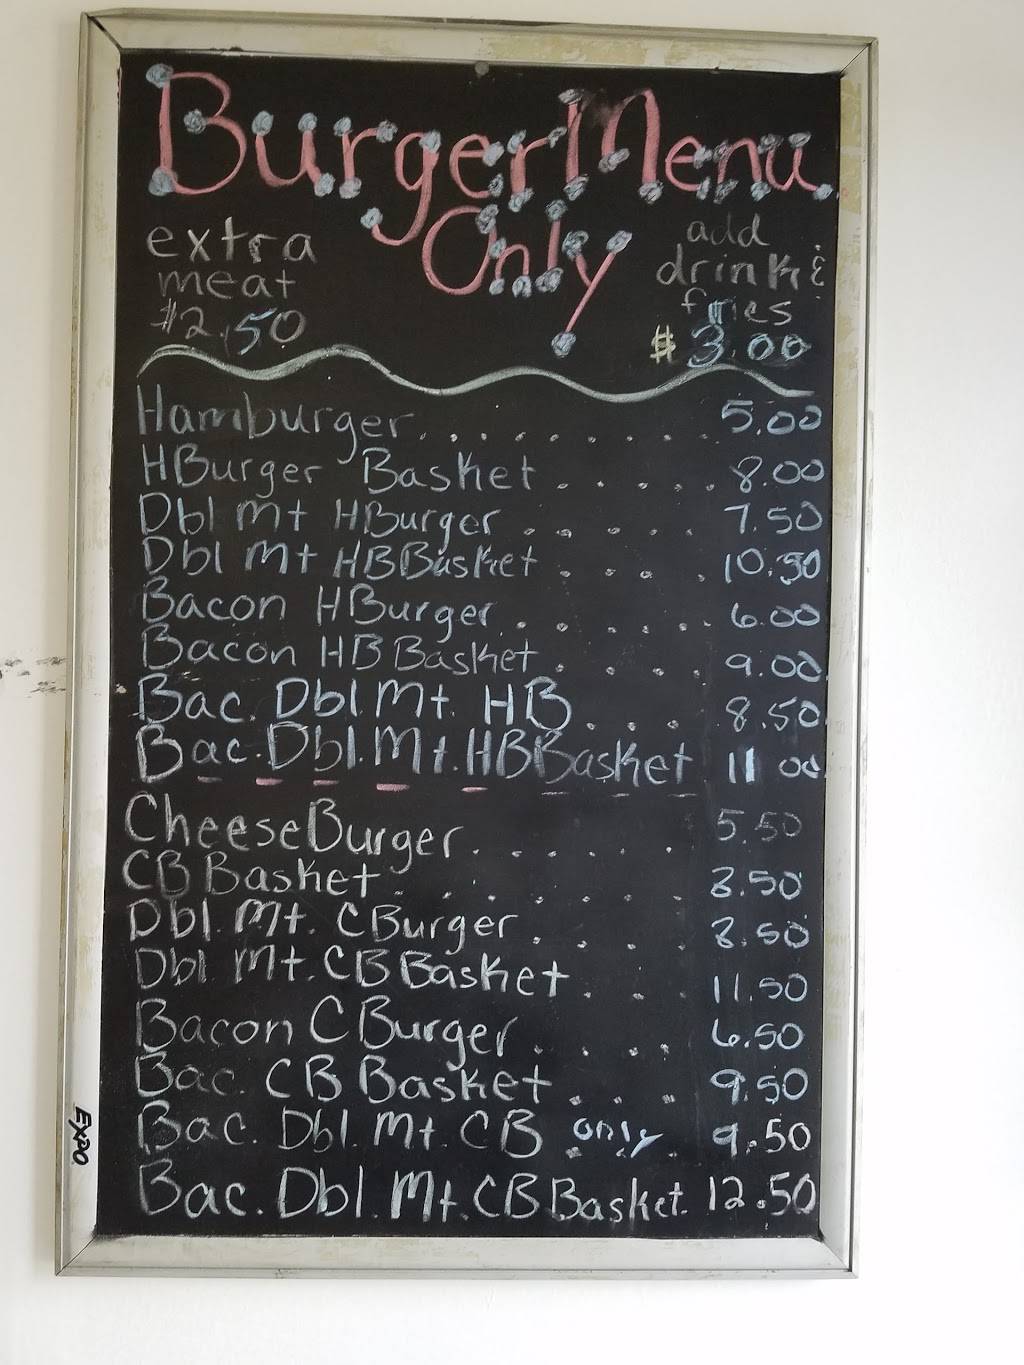 Burger Menu
Only
extra
meat
$2.50
add
drink &
fries
$3.00
Hamburger........ 5.00
HBurger Basket..... 8.00
Dbl Mt HBurger..... 7.50
Dbl Mt HBBasket.... 10.50
Bacon HBurger...... 6.00
Bacon HB Basket.... 9.00
Bac. Dbl. Mt. HB... 8.50
Bac. Dbl. Mt. HBBasket 11.00
CheeseBurger...... 5.50
CB Basket....... 8.50
Dbl. Mt. CBurger.... 8.50
Dbl. Mt. CB Basket... 11.50
Bacon CBurger.... 6.50
Bac. CB Basket... 9.50
Bac. Dbl. Mt. CB only. 9.50
Bac. Dbl. Mt. CB Basket. 12.50
EXPO